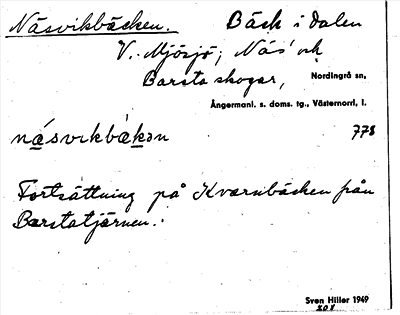 Näsvikbäcken. Bäck i dalen
V. Mjösjö; Näs' och
Barsta skogar, Nordingrå sn,
Ångermanl. s. doms. tg., Västernorrl. l.
näsvikbäkən 778
Fortsättning på Kvarnbäcken från
Barstatjärnen.
Sven Hiller 1949
208